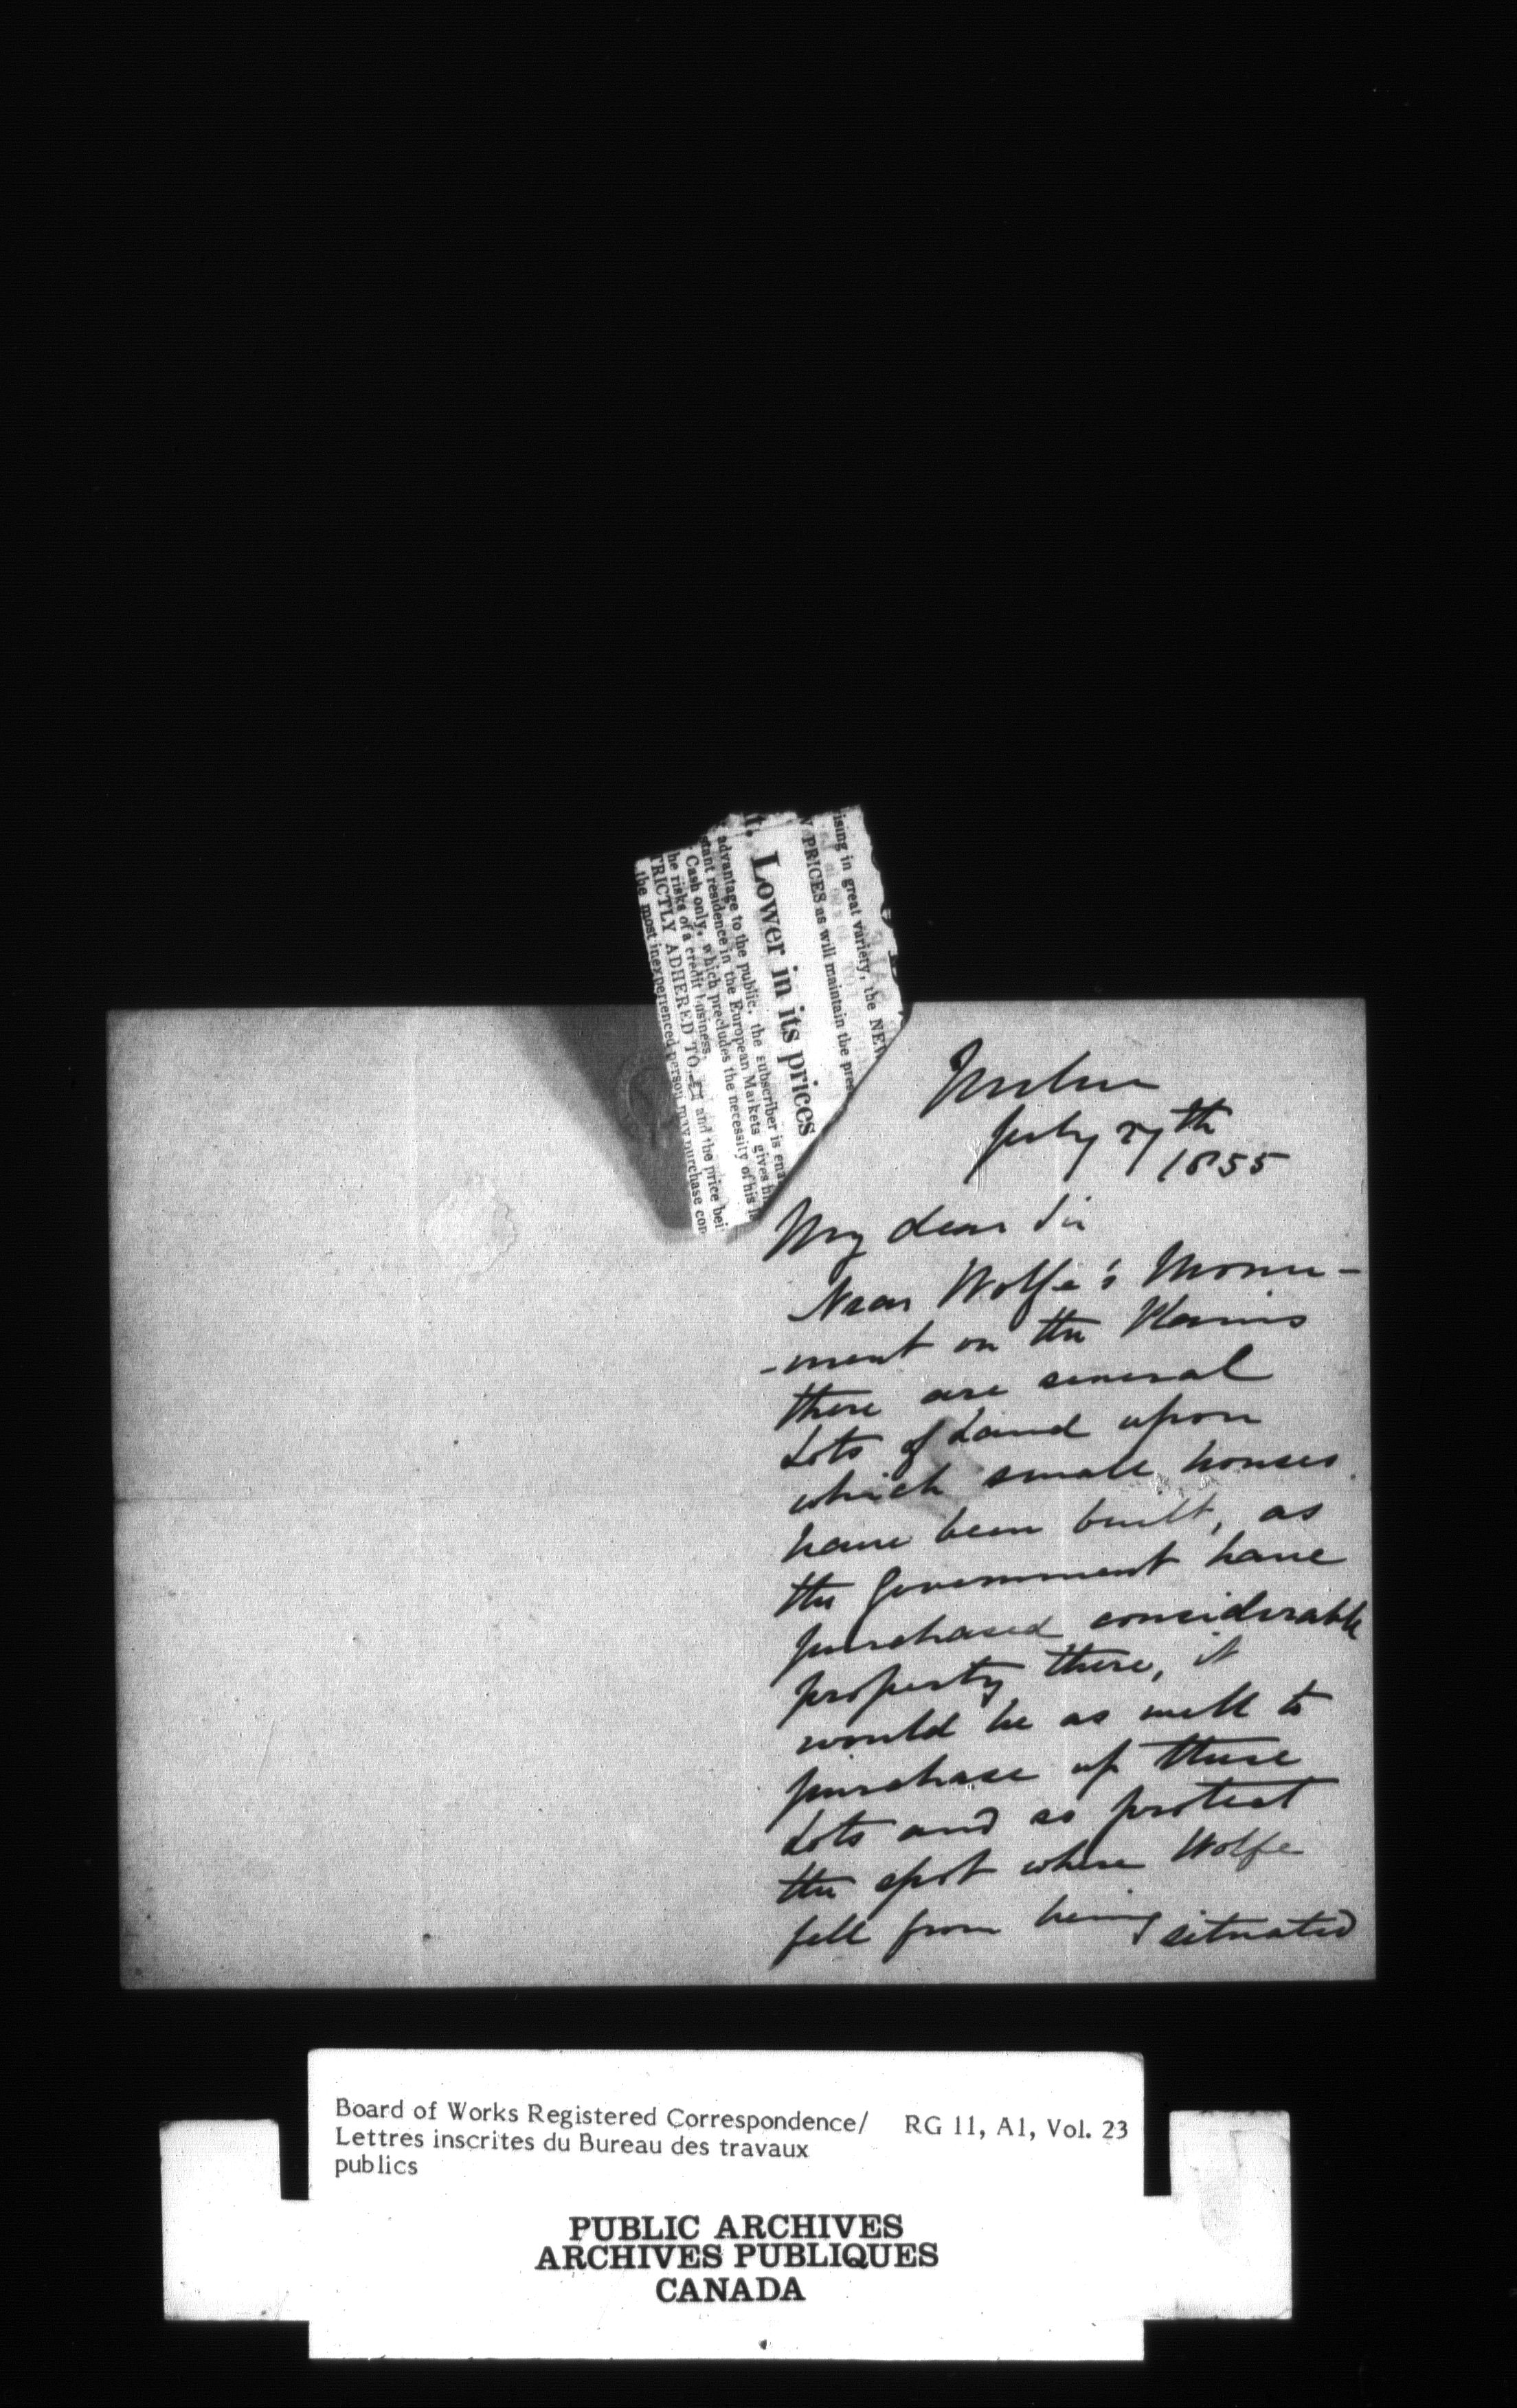 ising in great variety, the NEW
PRICES as will maintain the pres
Lower in its prices
advantage to the public, the subscriber is ena
stant residence in the European Markets gives hi
Cash only, which precludes the necessity of his
he risks of a credit business.
TRICTLY ADHERED TO, and the price bei
the most inexperienced person may purchase con
July 27th
1855
My dear Sir
Near Wolfe's Monu-
-ment on the Plains
there are several
Lots of Land upon
which small houses
have been built, as
the Government have
purchased considerable
property there, it
would be as well to
purchase up these
Lots and so protect
the spot where Wolfe
fell from being situated
Board of Works Registered Correspondence/ RG 11, A1, Vol. 23
Lettres inscrites du Bureau des travaux
publics
PUBLIC ARCHIVES
ARCHIVES PUBLIQUES
CANADA